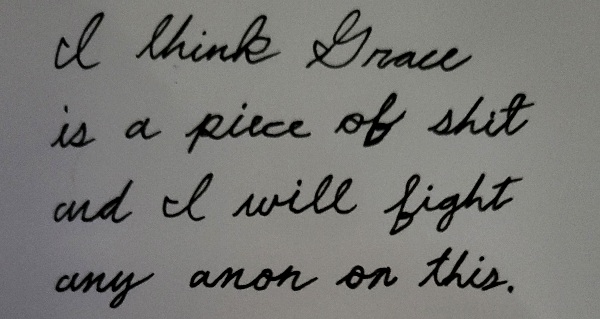 I think Grace
is a piece of shit
and I will fight
any anon on this.